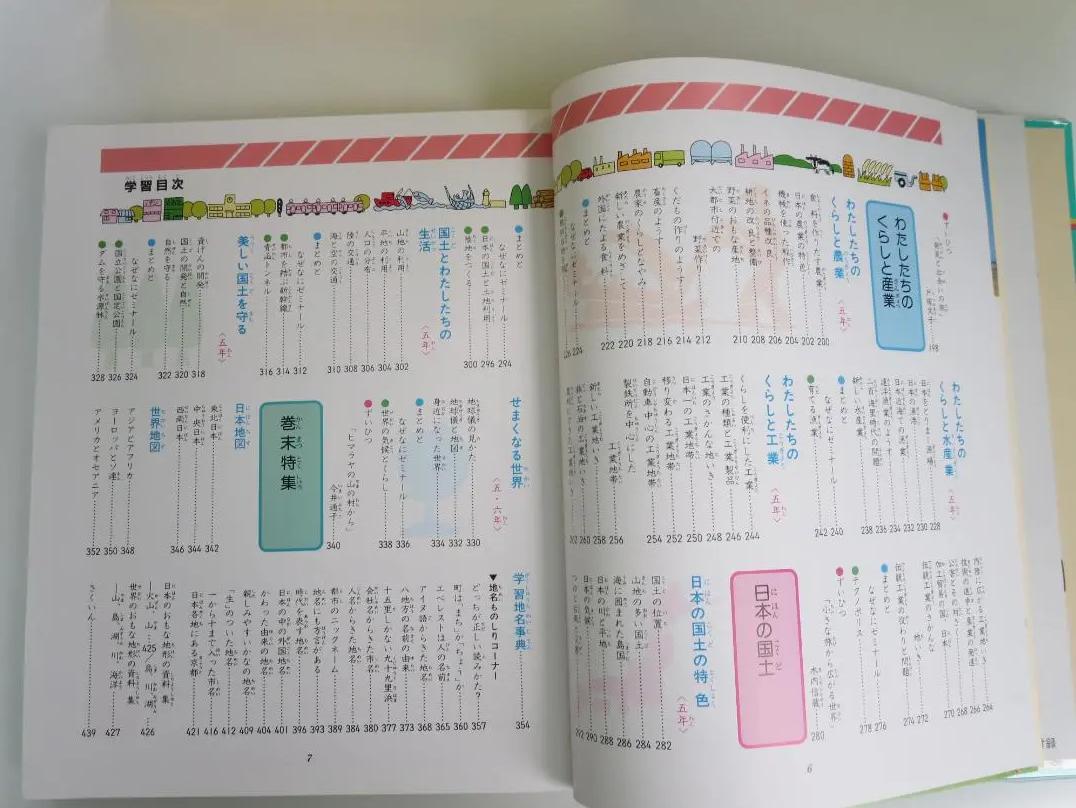 ●ずいひつ
戸塚文子 198
わたしたちの
くらしと産業
わたしたちの
くらしと農業〈五年〉
食料を作りだす農業 200
日本の農業の特色 202
機械を使った稲作 204
イネの品種改良 206
耕地の改良と整備 208
野菜のおもな産地 210
大都市付近での
野菜作り 212
くだもの作りのようす 214
畜産のようす 216
農家のくらしとなやみ 218
新しい農業をめざして 220
外国にたよる食料 222
●まとめと
なぜなにゼミナール 224
226
わたしたちの
くらしと水産業〈五年〉
日本をとりまく漁場 228
日本の漁港 230
日本近海での漁業 232
遠洋漁業のようす 234
二百海里時代の問題 236
新しい水産業 238
●まとめと
なぜなにゼミナール 240
●育てる漁業 242
わたしたちの
くらしと工業〈五年〉
くらしを便利にした工業 244
工業の種類と工業製品 246
工業のさかんな地いき 248
日本の工業地帯 250
移り変わる工業地帯 252
自動車中心の工業地帯 254
製鉄所を中心にした
工業地帯 256
新しい工業地いき 258
鉄と石油の工業地いき 260
262
内陸に広がる工業地いき 264
技術の進歩と産業の発達 266
公害とその防止 268
加工貿易の国 日本 270
伝統工業のさかんな
地いき 272
伝統工業の変わりと問題 274
●まとめと
なぜなにゼミナール 276
●テクノポリス 278
●ずいひつ
木内信蔵 280
日本の国土
日本の国土の特色〈五年〉
国土の位置 282
山地の多い国土 284
海に囲まれた島国 286
日本の川と平地 288
日本の気候 290
292
6
学習目次
●まとめと
なぜなにゼミナール 294
●日本の国土と土地利用 296
●陸地をつくる 300
国土とわたしたちの
生活〈五年〉
山地の利用 302
平地の利用 304
人口の分布 306
陸の交通 308
海と空の交通 310
●まとめと
なぜなにゼミナール 312
●都市を結ぶ新幹線 314
●青函トンネル 316
美しい国土を守る〈五年〉
資げんの開発 318
国土の開発と自然 320
自然を守る 322
●まとめと
なぜなにゼミナール 324
●国立公園と国定公園 326
●ダムを守る水源林 328
せまくなる世界〈五・六年〉
地球儀の見かた 330
地球儀と地図 332
身近になった世界 334
●まとめと
なぜなにゼミナール 336
●世界の気候とくらし 338
●ずいひつ
「ヒマラヤの山の村から」
今井通子 340
巻末特集
日本地図
東北日本 342
中央日本 344
西南日本 346
世界地図
アジアとアフリカ 348
ヨーロッパとソ連 350
アメリカとオセアニア 352
学習地名事典 354
▼地名ものしりコーナー
どっちが正しい読みかた? 357
町は「まち」か「ちょう」か 360
エベレストは人の名前 365
アイヌ語からきた地名 368
八地方の名前の由来 373
十五里しかない九十九里浜 377
会社名からきた市名 380
人名からきた地名 384
都市のニックネーム 389
地名にも方言がある 393
時代を表す地名 396
日本の中の外国地名 401
かわった由来の地名 404
親しみやすいかなの地名 409
「生」のついた地名 412
一から十まで入った市名 416
日本各地にある京都 421
日本のおもな地形の資料集
―火山、山…425/島、川、湖… 426
世界のおもな地形の資料集
―山、島、湖、川、海洋 427
さくいん 439
7